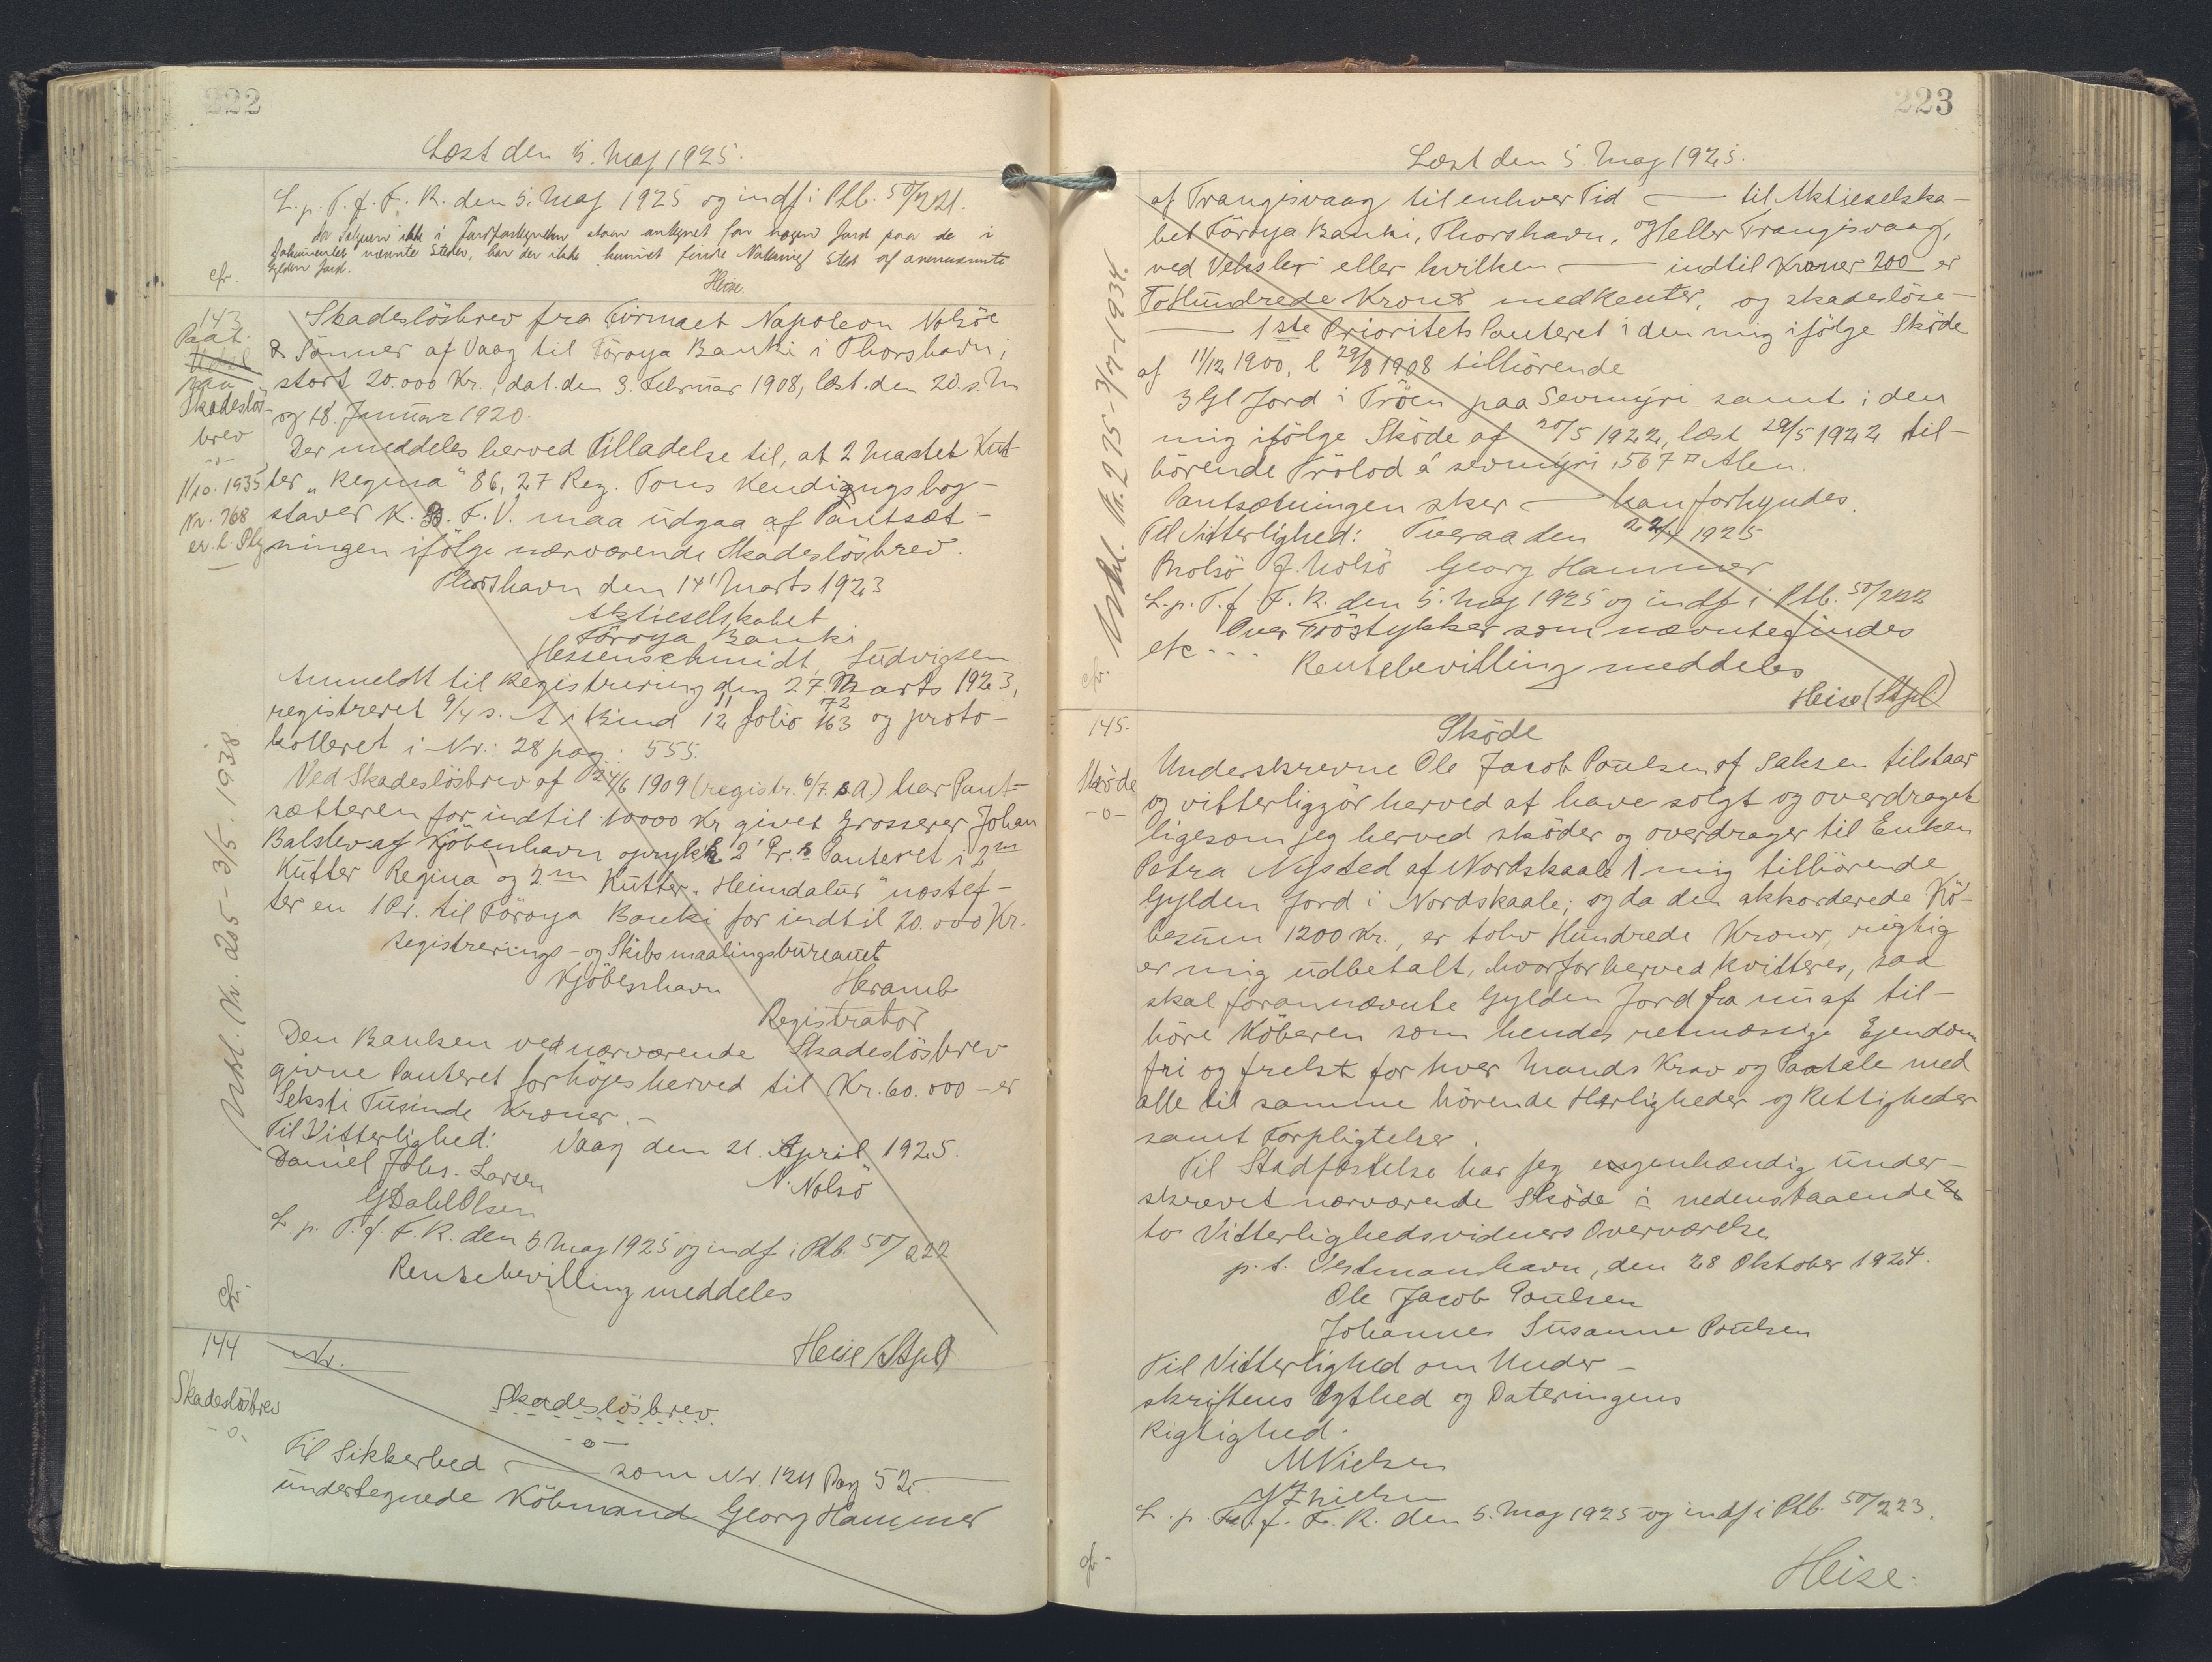 222
Læst den 5. Maj 1925.
L. p. T. f. F. R. den 5. Maj 1925 og indf i Ptb. 50/221.
Da Sælgeren ikke i staar antegnet for nogen Jord paa de i
Dokumentet nævnte Steder, har der ikke kunnet finde Sted af
Gylden Jord.
cfr.
Heise.
143
Paat.
paa
Skadeslös-
brev
-o-
1/10. 1935
Nr. 768
Skadeslösbrev fra Firmaet Napoleon Nolsöe
& Sönner af Vaag til Föroya Banki i Thorshavn,
stort 20.000 Kr., dat. den 3. Februar 1908, læst den 20. s. M
og 18. Januar 1920.
Der meddeles herved Tilladelse til, at 2 Mastet Kut-
ter „Regina" 86,27 Reg. Tons Kendingsbog-
staver K. B. F. V. maa udgaa af Pantsæt-
ningen ifölge nærværende Skadeslösbrev.
Thorshavn den 14' Marts 1923
Aktieselskabet
Föroya Banki
Hessenschmidt, Ludvigsen
Anmeldt til Registrering den 27. Marts 1923,
registreret 9/4 s. A i Bind 12 folio 163 og proto-
11 72
kolleret i Nr.: 28 pag: 555.
Ved Skadeslösbrev af 24/6 1909 (registr. 6/7. s.A.) har Pant-
sætteren for indtil 10000 Kr givet Grosserer Johan
Balslev af Kjöbenhavn oprykk. 2' Pr. s Panteret i 2 m
Kutter Regina og 2 m Kutter „Heimdalur" næstef-
ter en 1 Pr. til Föroya Banki for indtil 20.000 Kr.
Registrerings- og Skibsmaalingsbureauet
Kjöbenhavn Heramb
Registrator
Den Banken ved nærværende Skadeslösbrev
givne Panteret forhöjes herved til Kr. 60.000 - er
Seksti Tusinde Kroner. -
Til Vitterlighed: Vaag den 21. April 1925.
Daniel Johs. Larsen N. Nolsö
G Dahl Olsen
L. p. T. f. F. R. den 5. Maj 1925 og indf i Ptb. 50/222
Rentebevilling meddeles
Heise (Stpl)
Udsl. Nr. 205 - 3/5. 1938
cfr.
144
Skadeslösbrev
-o-
Nr.
Skadeslösbrev.
-o-
Til Sikkerhed — som Nr. 124 Pag 52 —
undertegnede Köbmand Georg Hammer
223
Læst den 5. Maj 1925.
af Trangisvaag til enhver Tid — til Aktieselska-
bet Föroya Banki, Thorshavn, og/eller Trangisvaag,
ved Veksler eller hvilken — indtil Kroner 200 er
To Hundrede Kroner med Renter, og skadeslöse-
— 1ste Prioritets Panteret i den mig ifölge Sköde
af 11/12 1900, l 29/8 1908 tilhörende
3 Gl Jord i Tröen paa Sevmyri samt i den
mig ifölge Sköde af 20/5 1922, læst 29/5 1922 til-
hörende Trölod á sevmyri 567 □ Alen.
Pantsætningen sker — kan forkyndes.
Til Vitterlighed: Tveraa den 22/4 1925
J. Nolsö Georg Hammer
L. p. T. f. F. R. den 5. Maj 1925 og indf i Ptb. 50/222
Over Tröstykker som nævnte findes
etc ---
Rentebevilling meddeles
Heise (Stpl)
cfr.
145.
Sköde
-o-
Sköde
Underskrevne Ole Jacob Poulsen af Saksen tilstaar
og vitterliggör herved at have solgt og overdraget
ligesom jeg herved sköder og overdrager til Enken
Petra Nysted af Nordskaale 1 mig tilhörende
Gylden Jord i Nordskaale; og da den akkorderede Kö-
besum 1200 Kr., er tolv Hundrede Kroner, rigtig
er mig udbetalt, hvorfor herved kvitteres, saa
skal forannævnte Gylden Jord fra nu af til-
höre Köberen som hendes retmæssige Ejendom
fri og frelst for hver Mands Krav og Paatale med
alle til samme hörende Herligheder og Rettigheder
samt Forpligtelser.
Til Stadfæstelse har jeg egenhændig under-
skrevet nærværende Sköde i nedenstaaende
to Vitterlighedsvidners Overværelse
p. t. Vestmanhavn, den 28 Oktober 1924.
Ole Jacob Poulsen
Johannes Susanne Poulsen
Til Vitterlighed om Under-
skriftens Ægthed og Dateringens
Rigtighed.
M Nielsen
L. p. T. f. F. R. den 5. Maj 1925 og indf i Ptb. 50/223.
cfr.
Heise.